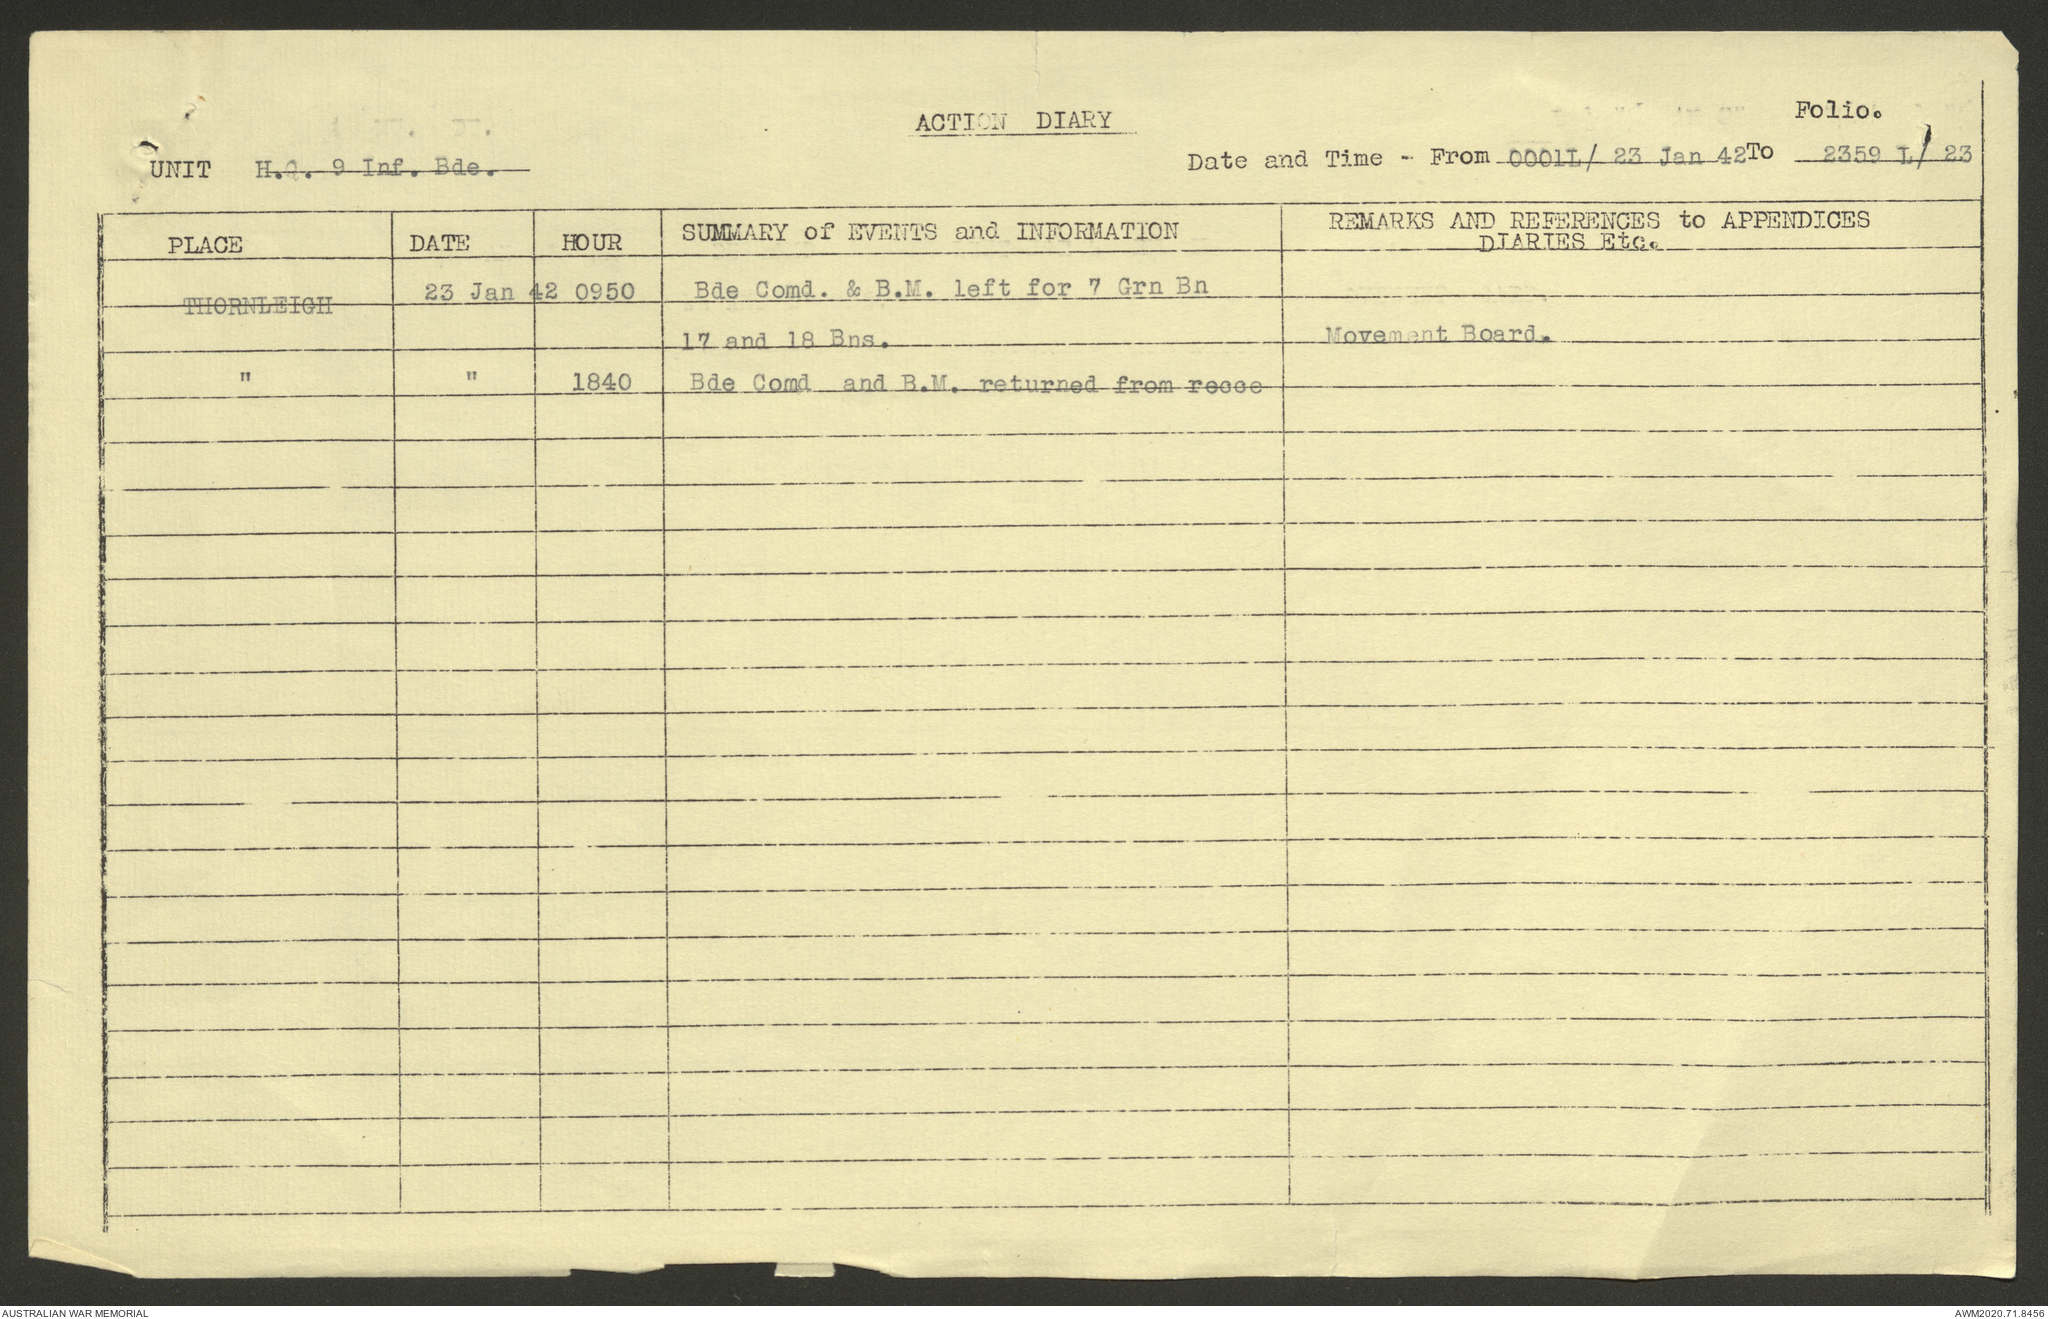 ACTION DIARY
Folio.
UNIT H.Q. 9 Inf. Bde.
Date and Time - From 0001L/ 23 Jan 42 To 2359 L/ 23
PLACE DATE HOUR SUMMARY of EVENTS and INFORMATION REMARKS AND REFERENCES to APPENDICES
DIARIES Etc.
THORNLEIGH 23 Jan 42 0950 Bde Comd. & B.M. left for 7 Grn Bn
17 and 18 Bns. Movement Board.
" " 1840 Bde Comd and B.M. returned from recce
AUSTRALIAN WAR MEMORIAL
AWM2020.71.8456